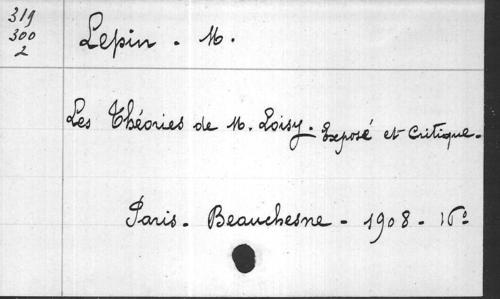 319
300
2
Lepin. M.
Les Théories de M. Loisy. Exposé et Critique.
Paris. Beauchesne - 1908 - 16º